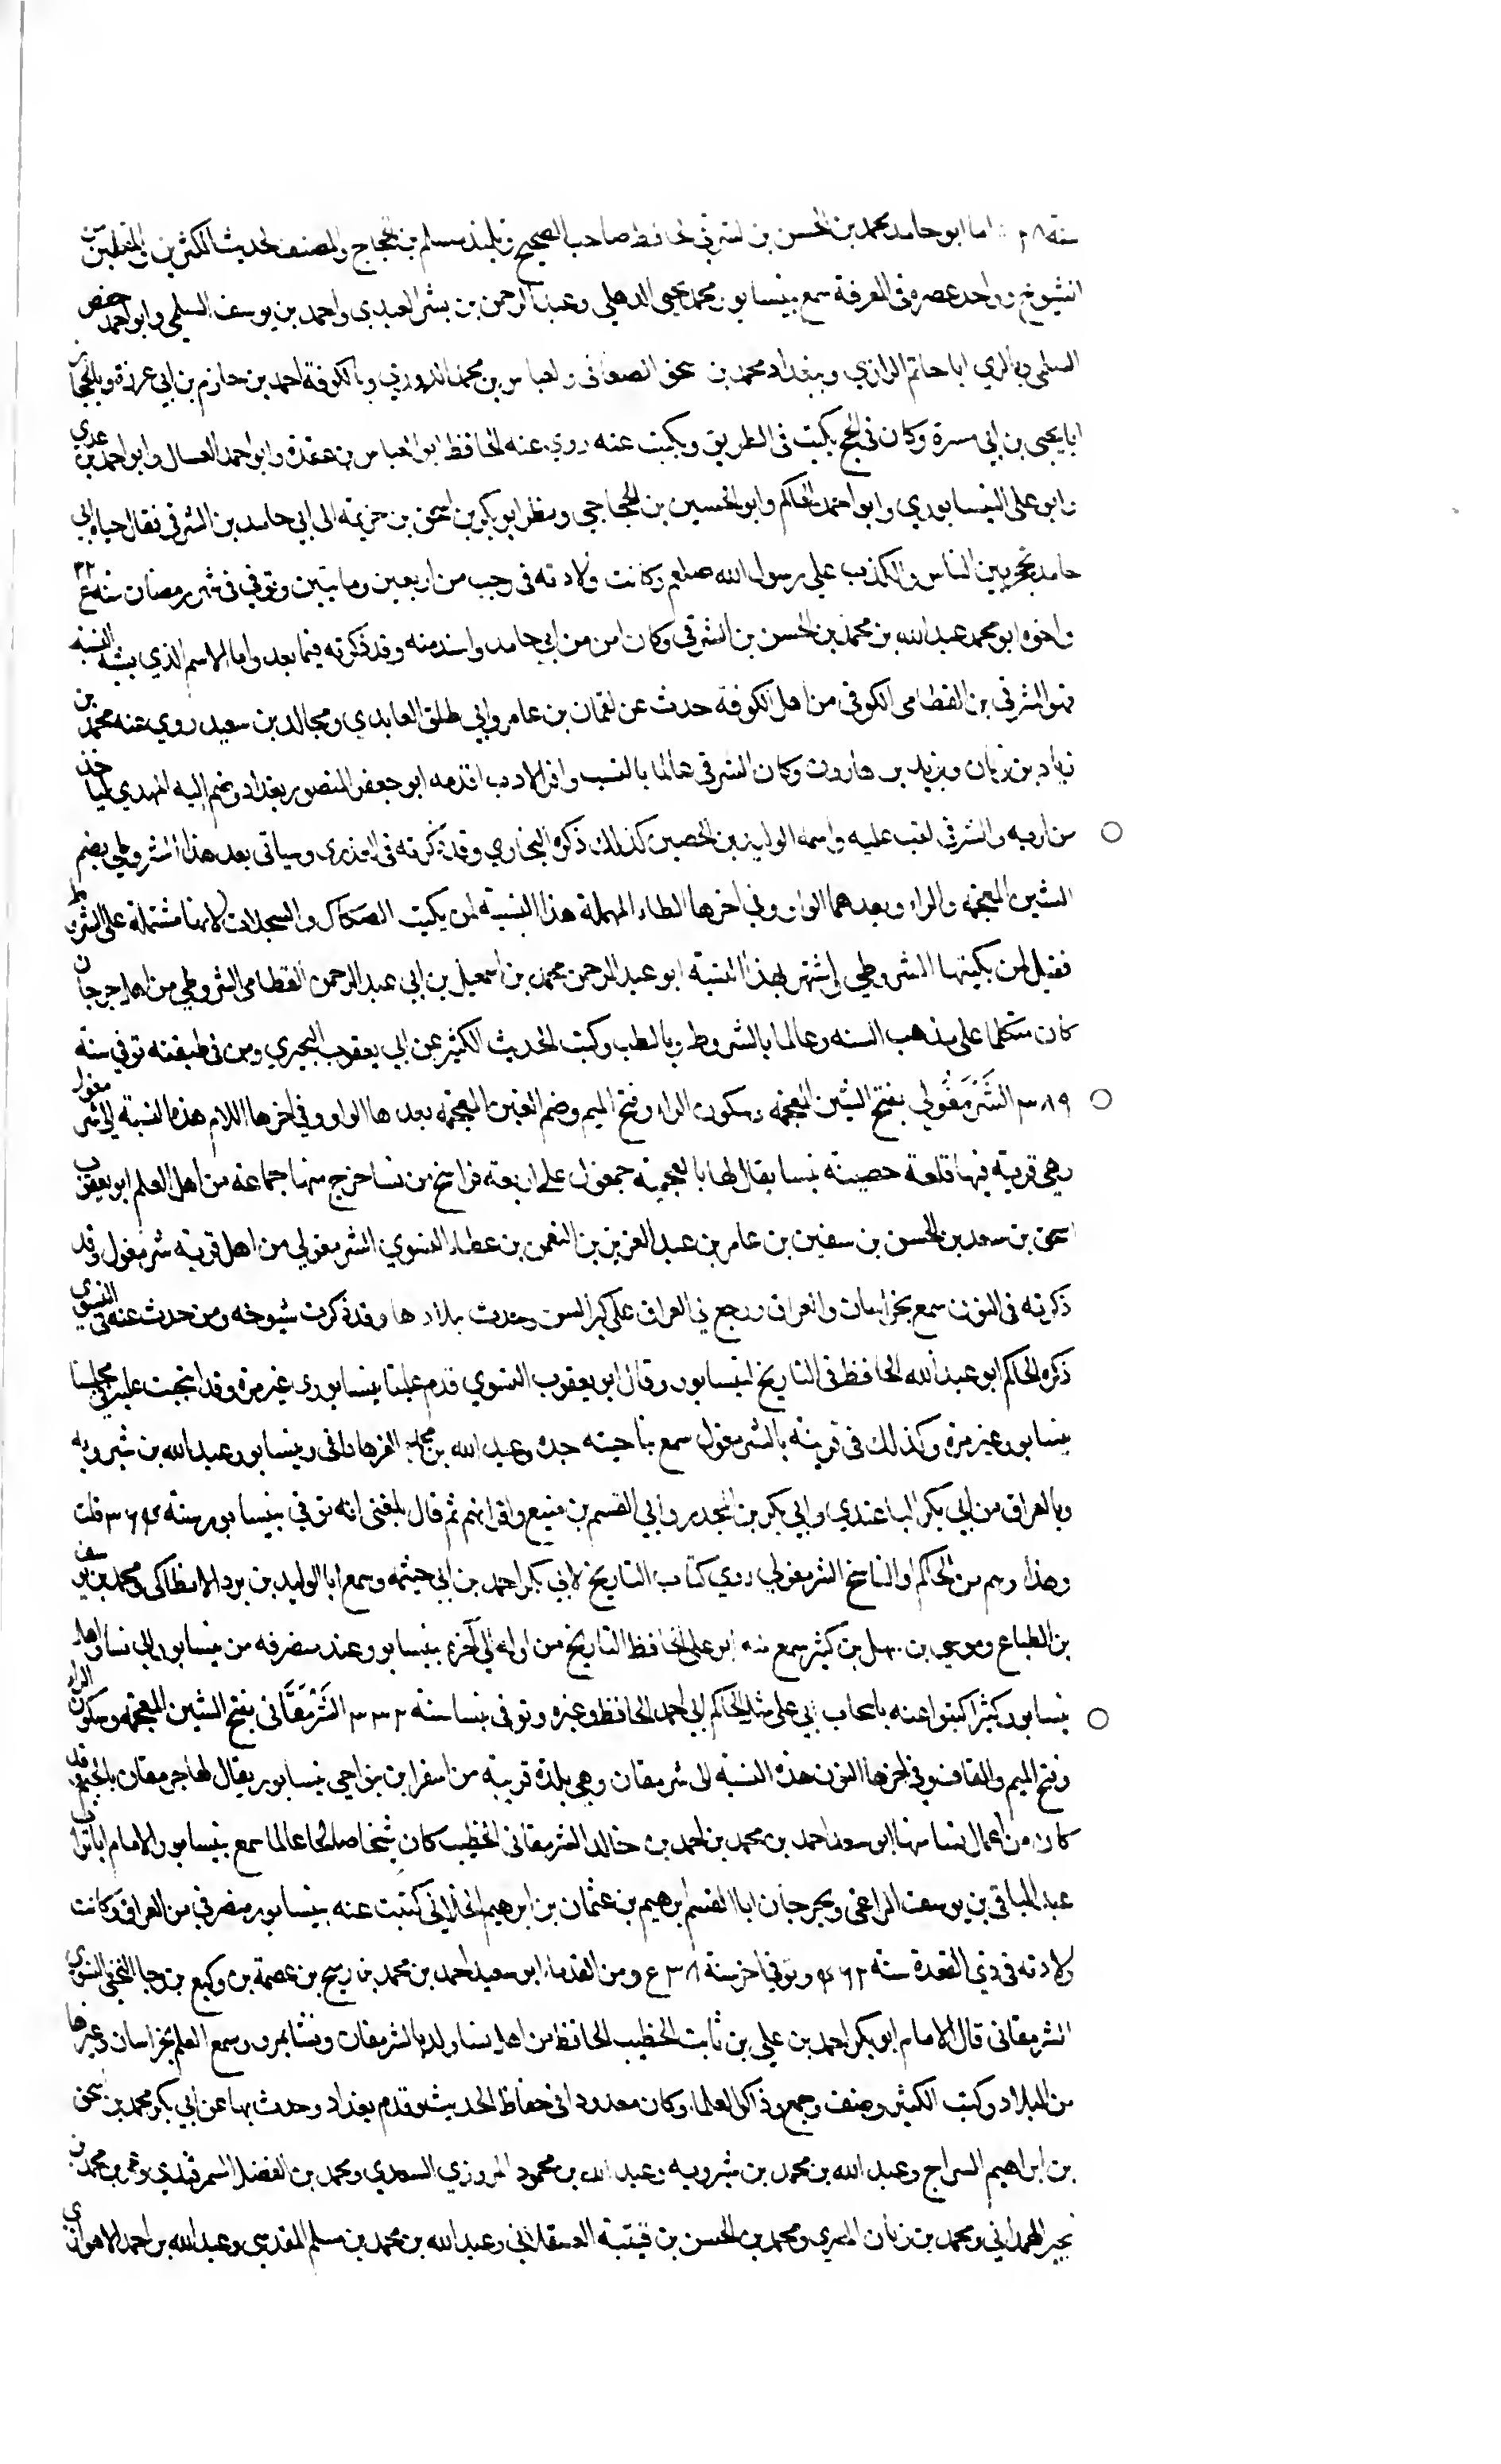 سنة ٣٠٨ اما ابو حامد محمد بن الحسن بن الشرقي الحافظ صاحب الصحيح تلميذ مسلم بن الحجاج والمصنف لحديث المكثرين والمقلين من
الشيوخ وواحد عصره في المعرفة سمع بنيسابور محمد يحيى الدهلي وعبد الرحمن بن بشر العبدي واحمد بن يوسف السلمي وابو احمد حفص
السلمي وبالري ابا حاتم الرازي وببغداد محمد بن اسحق الصغاني والعباس بن محمد الدوري وبالكوفة احمد بن حازم بن ابي غرزة وبالحجاز
ابا يحيى بن ابي مسرة وكان في الحج يكتب في الطريق ويكتب عنه روي عنه الحافظ ابو العباس بن عقدة وابو احمد العسال وابو احمد بن عدي
وابو على النيسابوري وابو احمد الحاكم وابو الحسين بن الحجاجي ونظر ابو بكر بن اسحق بن خزيمة الى ابي حامد بن الشرقي فقال حياة ابي
حامد تحجز بين الناس والكذب على رسول الله صلعم وكانت ولادته في رجب من اربعين ومايتين وتوفي في شهر رمضان سنة ٣٢٤
واخوه ابو محمد عبد الله بن محمد بن الحسن بن الشرقي وكان اسن من ابي حامد واسند منه وقد ذكرته فيما بعد واما الاسم الذي يشبه النسبة
فهو الشرقي بن القطامي الكوفي من اهل الكوفة حدث عن لقمان بن عامر وابي طلق العايدي ومجالد بن سعيد روي عنه محمد بن
زياد بن زبان ويزيد بن هارون وكان الشرقي عالما بالنسب وافر الادب اقدمه ابو جعفر المنصور بغداد وضم اليه المهدي لياخذ
من ادبه والشرقي لقب عليه واسمه الوليد بن الحصين كذلك ذكره البخاري وقد ذكرته في وسياتي بعد هذا الشروطي بضم
الشين المعجمة والراء وبعدهما الواو وفي اخرها الطاء المهملة هذا النسبة لمن يكتب الصكاك والسجلات لانها مشتملة على الشروط
فقيل لمن يكتبها الشروطي اشتهر بهذا النسبة ابو عبد الرحمن محمد بن اسمعيل بن ابي عبد الرحمن القطامي الشروطي من اهل جرجان
كان متكلما على مذهب السنه وعالما بالشروط وبالطب وكتب الحديث الكثير عن ابي يعقوب البحيري ومن في طبقته توفي سنة
٣٨٩ الشَرْمَغُولي بفتح الشين المعجمة وسكون الراء وفتح الميم وضم الغين المعجمة بعدها الواو وفي اخرها اللام هذه النسبة الى شرمغول
وهي قرية فيها قلعة حصينة بنسا يقال لها بالعجمية جمغول على اربعة فراسخ من نسا خرج منها جماعة من اهل العلم ابو يعقوب
اسحق بن سعد بن الحسن بن سفين بن عامر بن عبد العزيز بن النعمن بن عطاء النسوي الشرمغولي من اهل قرية شرمغول وقد
ذكرته في النون سمع بخراسان والعراق ورجع الى العراق على كبر السن وحدث ببلادها وقد ذكرت شيوخه ومن حدث عنه في النسوي
ذكره الحاكم ابو عبد الله الحافظ في التاريخ لنيسابور وقال ابو يعقوب النسوي قدم علينا نيسابور غير مرة وقد انتخبت عليه في مجلسنا
بنيسابور غير مرة وكذلك في قريته بالشرمغول سمع بناحيته جده وعبد الله بن محمد الفرهاداني وبنيسابور عبد الله بن شيرويه
وبالعراق من ابي بكر الباغندي وابي بكر بن المجدر وابي القسم بن منيع واقرانهم ثم قال بلغني انه توفي بنيسابور سنة ٣٦٤ قلت
وهذا وهم من الحاكم او الناسخ الشرمغولي روي كتاب التاريخ لابي بكر احمد بن ابي خيثمة وسمع ابا الوليد بن برد الانطاكي ومحمد بن يوسف
بن الطباع وموسي بن سهل بن كثير سمع منه ابو على الحافظ التاريخ من اوله الى آخره بنيسابور وعند منصرفه من نيسابور الى نسا واهل
نيسابور كثيرا كتبوا عنه باصحاب ابي على مثل الحاكم ابي احمد الحافظ وغيره وتوفي بنسا سنة ٣٣٣ الشَرْمَقَاني بفتح الشين المعجمة وسكون الراء
وفتح الميم والقاف وفي اخرها النون هذه النسبة الى شرمقان وهي بلدة قريبة من اسفراين بنواحي نيسابور يقال لها جرمقان بالجيم وقد
كان من اعمال نسا منها ابو سعد احمد بن محمد بن احمد بن خالد الشرمقاني الخطيب كان شيخا صالحا عالما سمع بنيسابور الامام ابا تراب
عبد الباقي بن يوسف المراغي وبجرجان ابا القسم ابرهيم بن عثمان بن ابرهيم الخلالي كتبت عنه بنيسابور منصرفي من العراق وكانت
ولادته في ذي القعدة سنة ٤٦٣ وتوفي اخر سنة ومن القدماء ابو سعيد احمد بن محمد بن رميح بن عصمة بن وكيع بن رجا النخعي النسوي
الشرمقاني قال الامام ابو بكر احمد بن علي بن ثابت الخطيب الحافظ من اهل نسا ولد بالشرمقان ونشا بمرو وسمع العلم بخراسان وغيرها
من البلاد وكتب الكثير وصنف وجمع وذاكر العلماء وكان معدودا في حفاظ الحديث وقدم بغداد وحدث بها عن ابي بكر محمد بن اسحق
بن ابراهيم السراج وعبد الله بن محمد بن شيرويه وعبد الله بن محمود المروزي السعدي ومحمد بن الفضل السمرقندي وعمر بن محمد بن
بجير الهمداني ومحمد بن زبان المصري ومحمد بن الحسن بن قتيبة العسقلاني وعبد الله بن محمد بن مسلم المقدسي وعبد الله بن احمد الاهوازي